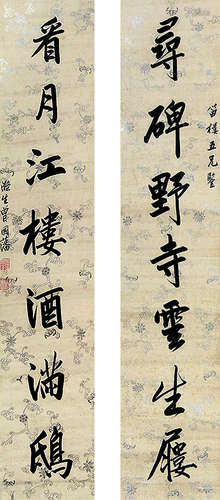 笛樓五兄鑒
尋碑野寺雲生屨
看月江樓酒滿鴟
滌生曾國藩